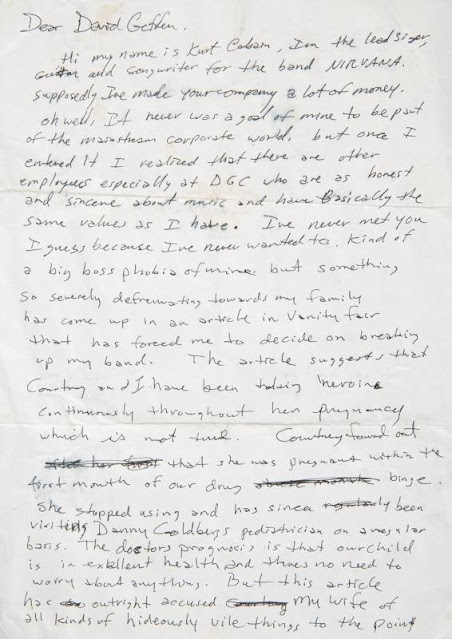 Dear David Geffen.
Hi my name is Kurt Cobain, I'm the lead singer,
and songwriter for the band NIRVANA.
supposedly I've made your company a lot of money.
oh well, It never was a goal of mine to be part
of the mainstream corporate world, but once I
entered it I realized that there are other
employees especially at DGC who are as honest
and sincere about music and have Basically the
same values as I have. I've never met you
I guess because I've never wanted to. Kind of
a big boss phobia of mine. but something
so severely defremating towards my family
has come up in an article in Vanity fair
that has forced me to decide on breaking
up my band. The article suggests that
Courtney and I have been taking heroine
continuously throughout her pregnancy
which is not true. Courtney found out
that she was pregnant within the
first month of our drug binge.
She stopped using and has since been
visiting Danny Goldbergs pediatrician on a regular
basis. The doctors prognosis is that our child
is in exellent health and theres no need to
worry about anything. But this article
has outright accused My wife of
all kinds of hideously vile things to the point